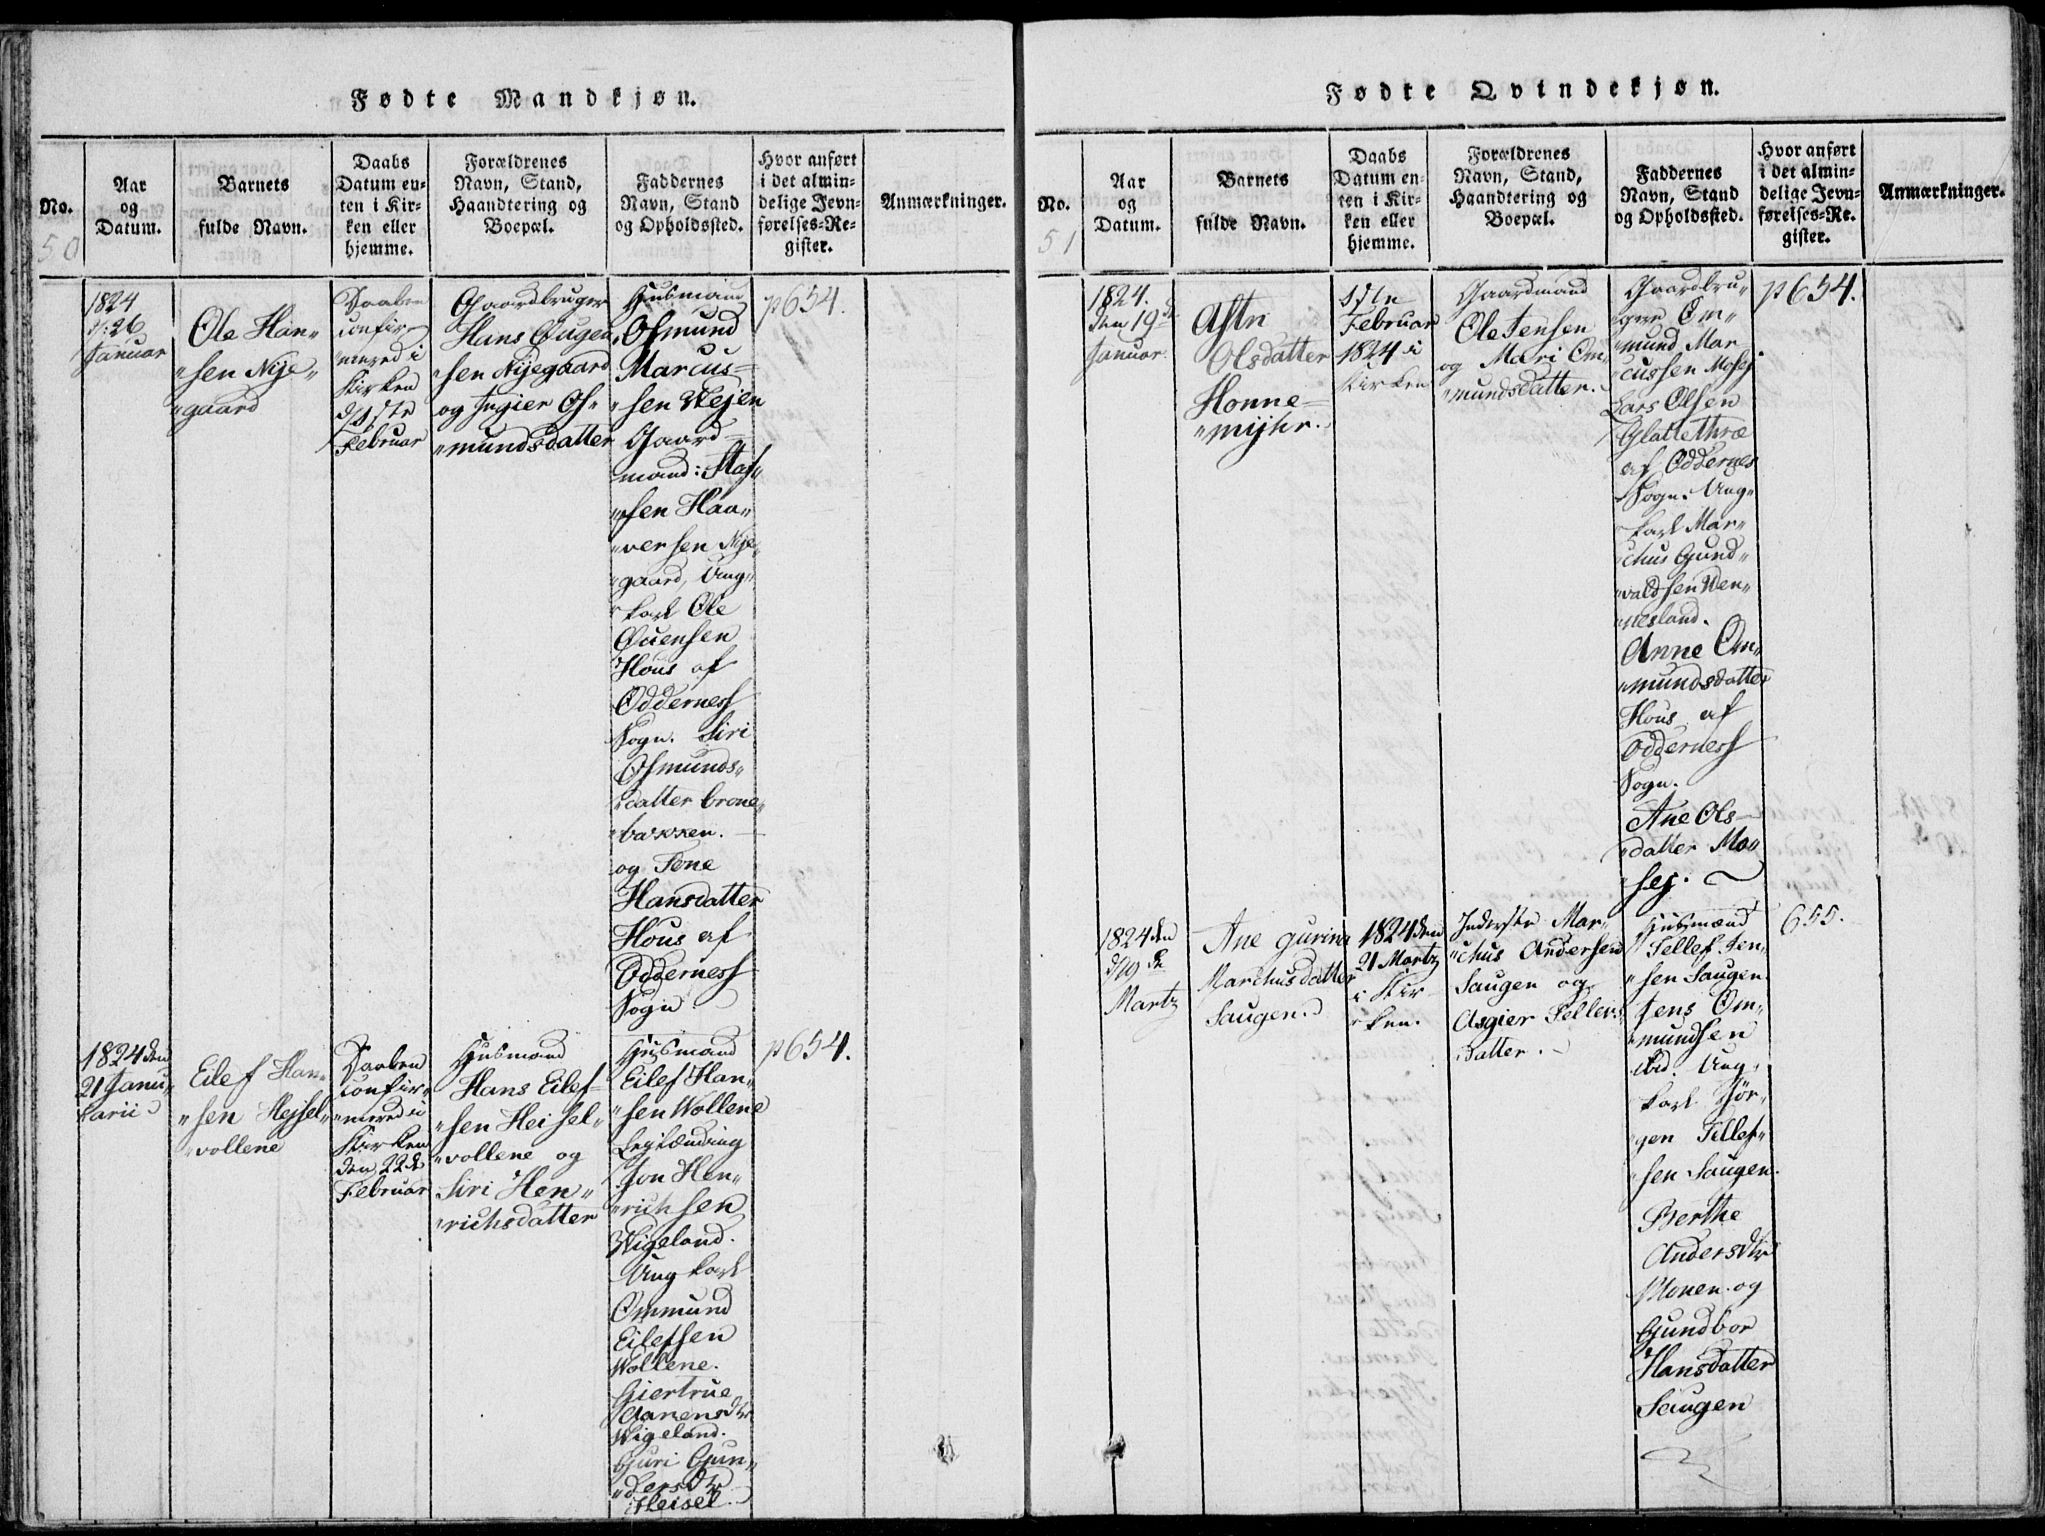 Fødte Mandkjøn.
No.
50
Aar
og
Datum.
Barnets
fulde Navn.
Daabs
Datum en-
ten i Kir-
ken eller
hjemme.
Forældrenes
Navn, Stand,
Haandtering og
Boepæl.
Faddernes
Navn, Stand
og Opholdssted.
Hvor anført
i det almin-
delige Jevn-
førelses-Re-
gister.
Anmærkninger.
1824
d: 26
Januar
Ole Han„
„sen Nye„
„gaard
Daaben
confir„
„mered i
Kirken
Februar
Gaardbruger
Hans
„sen Nyegaard
og Ingier Os„
„mundsdatter
Husmand
Osmund
Marcus=
„sen
Gaard=
mand:
„sen Haa„
„versen Nye„
„gaard, Ung„
„karl Ole
Hous af
Odderness
Sogn. Siri
Osmunds„
„datter
„bakken.
og Tone
Hansdatter
Hous af
Odderness
Sogn
p 654.
1824 den
21 Janu„
„arii
Eilef Han„
„sen Hejsel„
„vollene
Daaben
confir„
„mered i
Kirken
den 22de
Februar
Husmand
Hans Eilef=
„sen Heisel„
„vollene og
Siri Hen„
„richsdatter
Husmand
Eilef Han„
„sen Wollene
Lejlænding
Jon Hen„
„richsen
Wigeland.
Ung karl
Ommund
Eilefsen
Wollene.
Giertrue
Aanensdtr
Wigeland.
Guri Gun„
„dersdtr
Heisel.
p 654.
Fødte Qvindekjøn.
No.
51
Aar
og
Datum.
Barnets
fulde Navn.
Daabs
Datum en-
ten i Kir-
ken eller
hjemme.
Forældrenes
Navn, Stand,
Haandtering og
Boepæl.
Faddernes
Navn, Stand
og Opholdssted.
Hvor anført
i det almin-
delige Jevn-
førelses-Re-
gister.
Anmærkninger.
1824.
den 19de
Januar.
Astri
Olsdatter
Honne=
„mijhr.
Februar
1824 i
Kirken
Gaardmand
Ole Jensen
og Mari Om„
„mundsdatter.
Gaardbru„
„ger Om„
„mund Mar
„cussen Mosej.
Lars Olsen
Glattethræ
af Oddernes
Sogn. Ung„
„karl Mar„
„chus Gund„
„valdsen Wen„
„nesland.
Anne Om„
„mundsdatter
Hous af
Odderness
Sogn.
Ane Ols=
„datter Mo„
„sej.
p 654.
1824 den
Martz
Ane Gurine
Marchusdatter
Saugen.
1824 den
21 Martz
i Kir„
„ken.
Inderste Mar„
„chus Andersen
Saugen og
Asgier Tellefs„
datter.
Husmænd
Tellef Jen„
„sen Saugen.
Jens Om„
„mundsen
ibid. Ung„
„karl Jør„
„gen Tellef„
„sen Saugen.
Berthe
Andersdtr
Monen og
Gundbor
Hansdatter
Saugen
655.